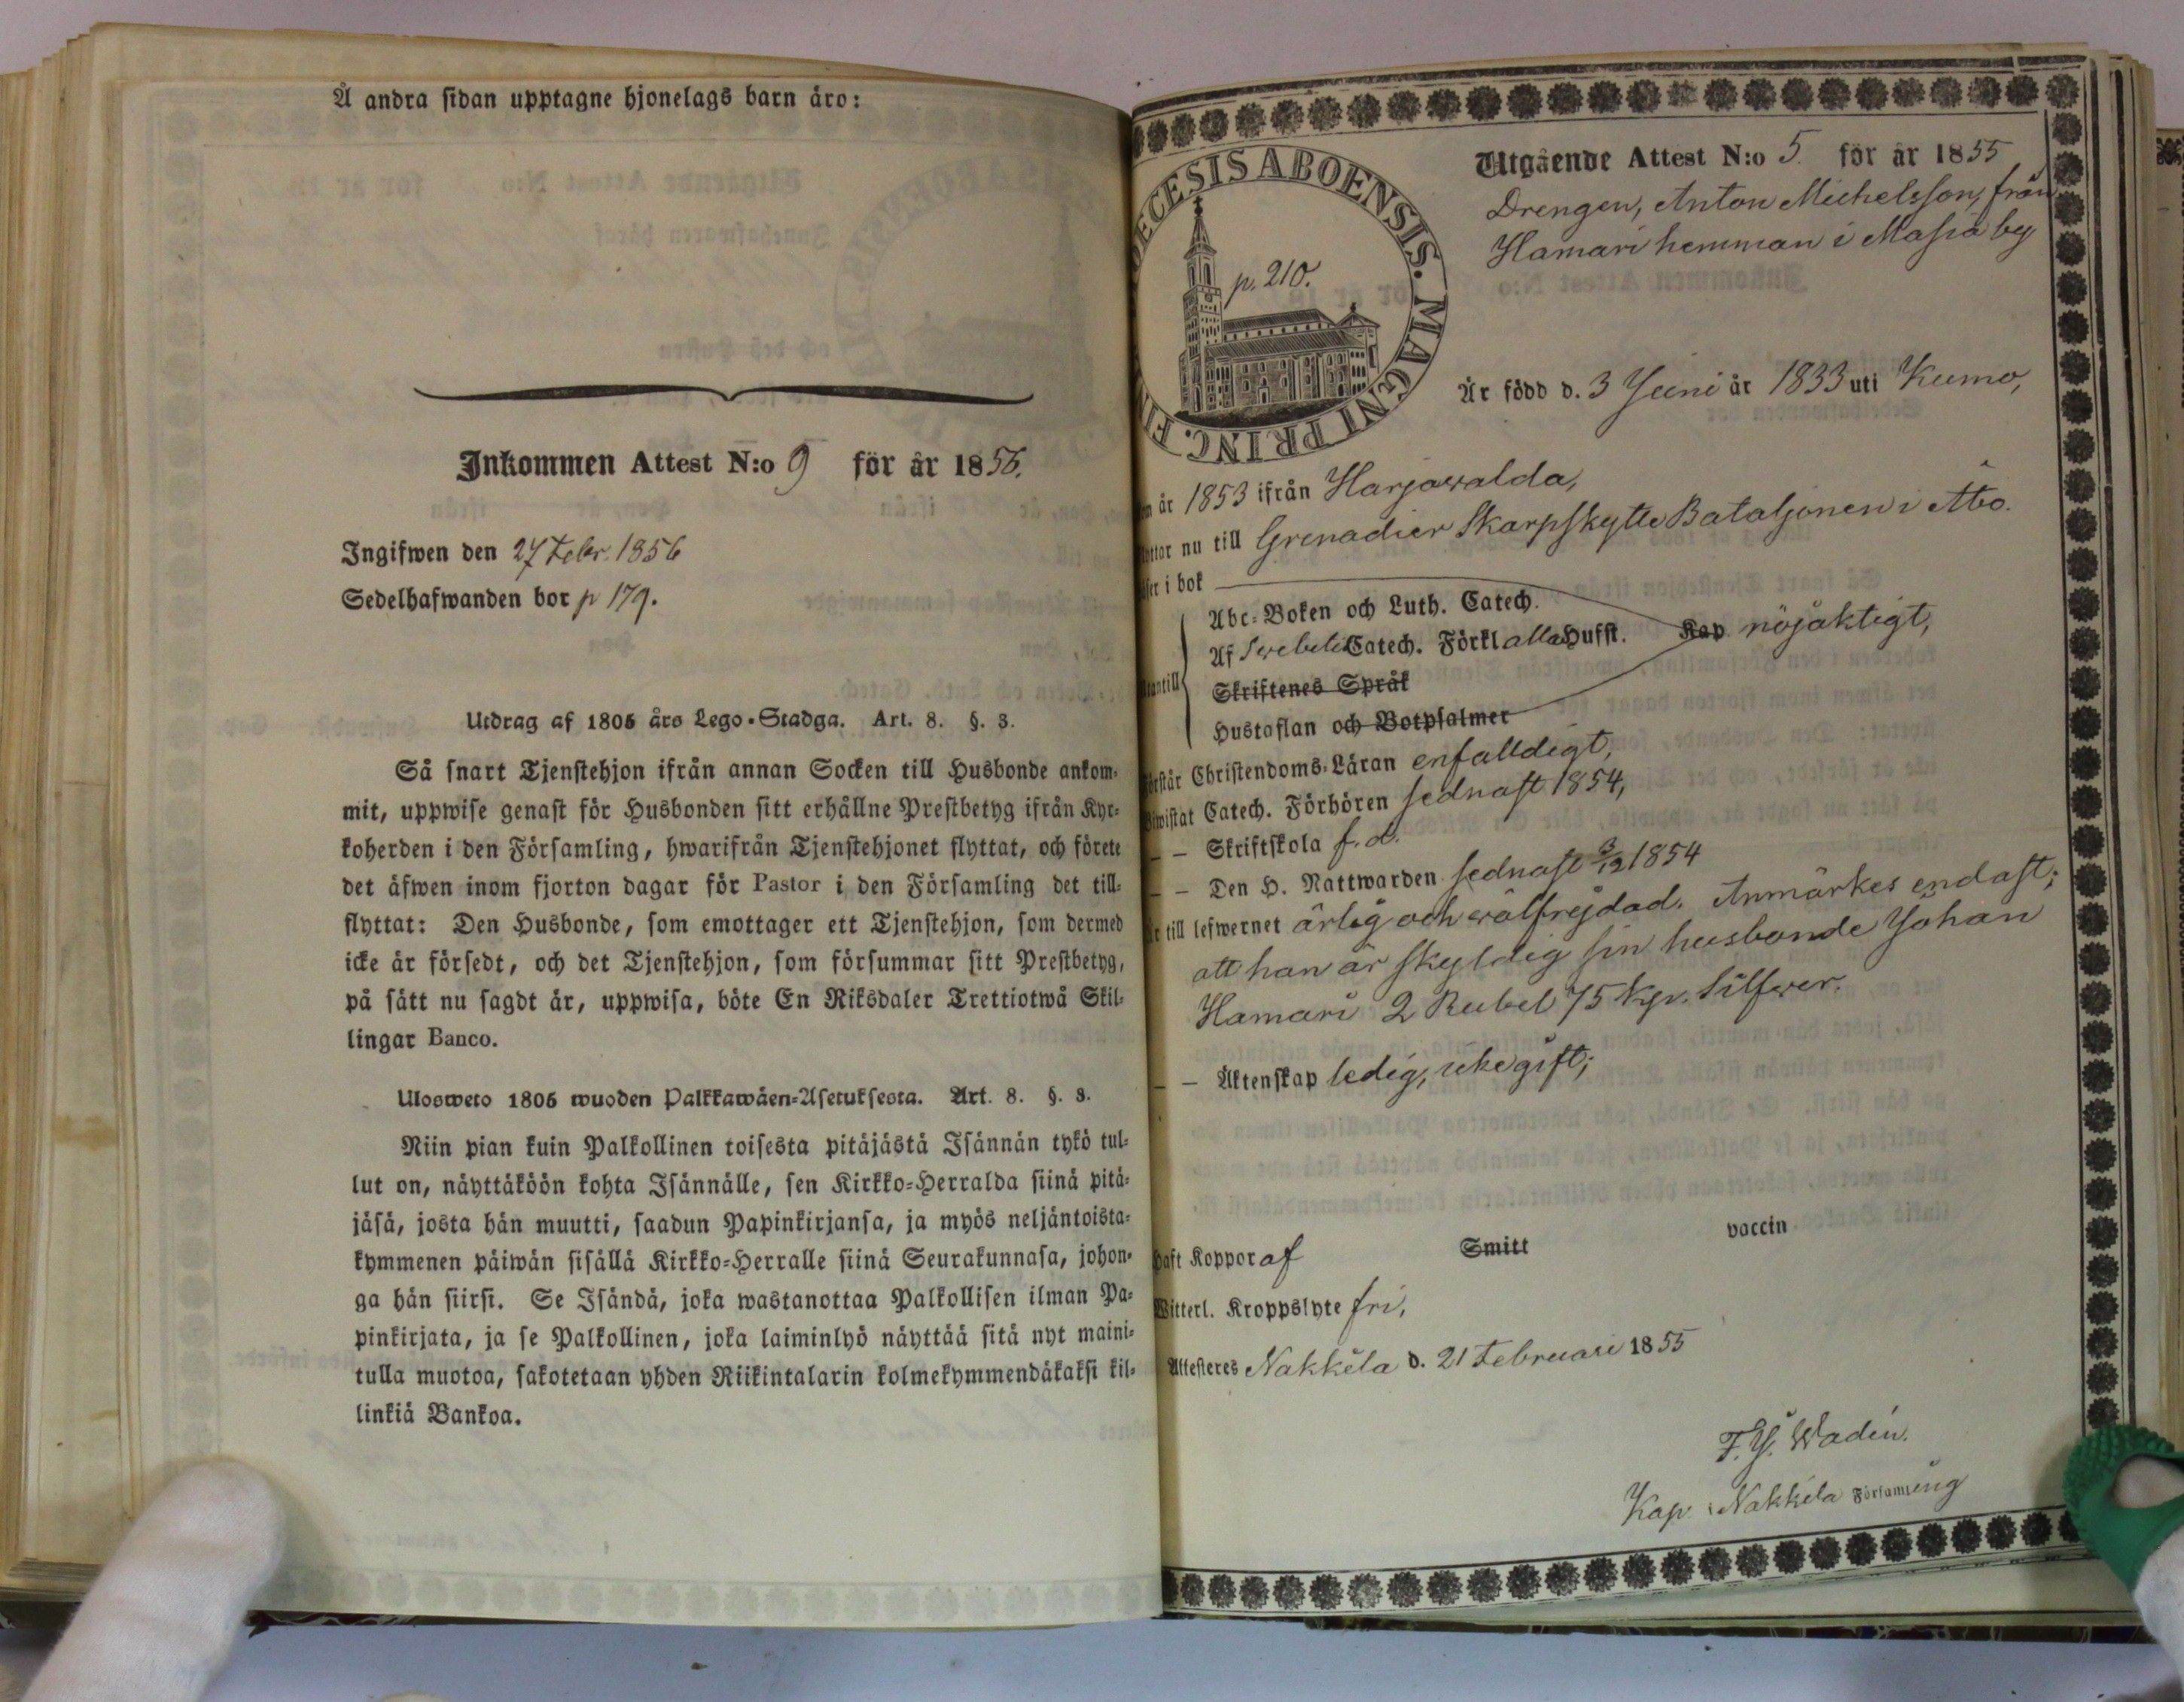 Å andra sidan upptagne hjonelags barn äro:
Inkommen Attest N:o 9 för år 1856.
Ingifwen den 27 Febr. 1856
Sedelhafwanden bor p 179.
Utdrag af 1805 års Lego-Stadga. Art. 8. §. 3.
Så snart Tjenstehjon ifrån annan Socken till Husbonde ankom-
mit, uppwise genast för Husbonden sitt erhållne Prestbetyg ifrån Kyr-
koherden i den Församling, hwarifrån Tjenstehjonet flyttat, och förete
det äfwen inom fjorton dagar för Pastor i den Församling det till-
flyttat: Den Husbonde, som emottager ett Tjenstehjon, som dermed
icke är försedt, och det Tjenstehjon, som försummar sitt Prestbetyg,
på sätt nu sagdt är, uppwisa, böte En Riksdaler Trettiotwå Skil-
lingar Banco.
Ulosweto 1805 wuoden Palkkawäen-Asetuksesta. Art. 8. §. 3.
Niin pian kuin Palkollinen toisesta pitäjästä Isännän tykö tul-
lut on, näyttäköön kohta Isännälle, sen Kirkko-Herralda siinä pitä-
jäsä, josta hän muutti, saadun Papinkirjansa, ja myös neljäntoista-
kymmenen päiwän sisällä Kirkko-Herralle siinä Seurakunnasa, johon-
ga hän siirsi. Se Isändä, joka wastanottaa Palkollisen ilman Pa-
pinkirjata, ja se Palkollinen, joka laiminlyö näyttää sitä nyt maini-
tulla muotoa, sakotetaan yhden Riikintalarin kolmekymmendäkaksi kil-
linkiä Bankoa.
ECESIS ABOENSIS. MAGNI PRINC. FIN
p. 210.
Utgående Attest N:o 5. för år 1855
Drengen, Anton Michelsson, från
Hamari hemman i Masia by
Är född d. 3 Juni år 1833 uti Kumo,
år 1853 ifrån Harjawalda,
nu till Grenadier Skarpskytte Bataljonen i Åbo.
i bok
Abc-Boken och Luth. Catech.
Af Swebelii Catech. Förkl alla Hufst. Kap nöjaktigt,
Skriftenes Språk
Hustaflan och Botpsalmer
Christendoms-Läran enfalldigt,
Catech. Förhören sednast 1854,
– – Skriftskola f. d.
– – Den H. Nattwarden sednast 3/12 1854
till lefwernet ärlig och wälfrejdad. Anmärkes endast;
att han är skyldig sin husbonde Johan
Hamari 2 Rubel 75 Kop. Silfwer.
– – Äktenskap ledig, icke gift;
Koppor af Smitt vaccin
Witterl. Kroppslyte fri,
Attesteres Nakkila d. 21 Februari 1855
F. J. Wadén.
Kap. i Nakkila Församling